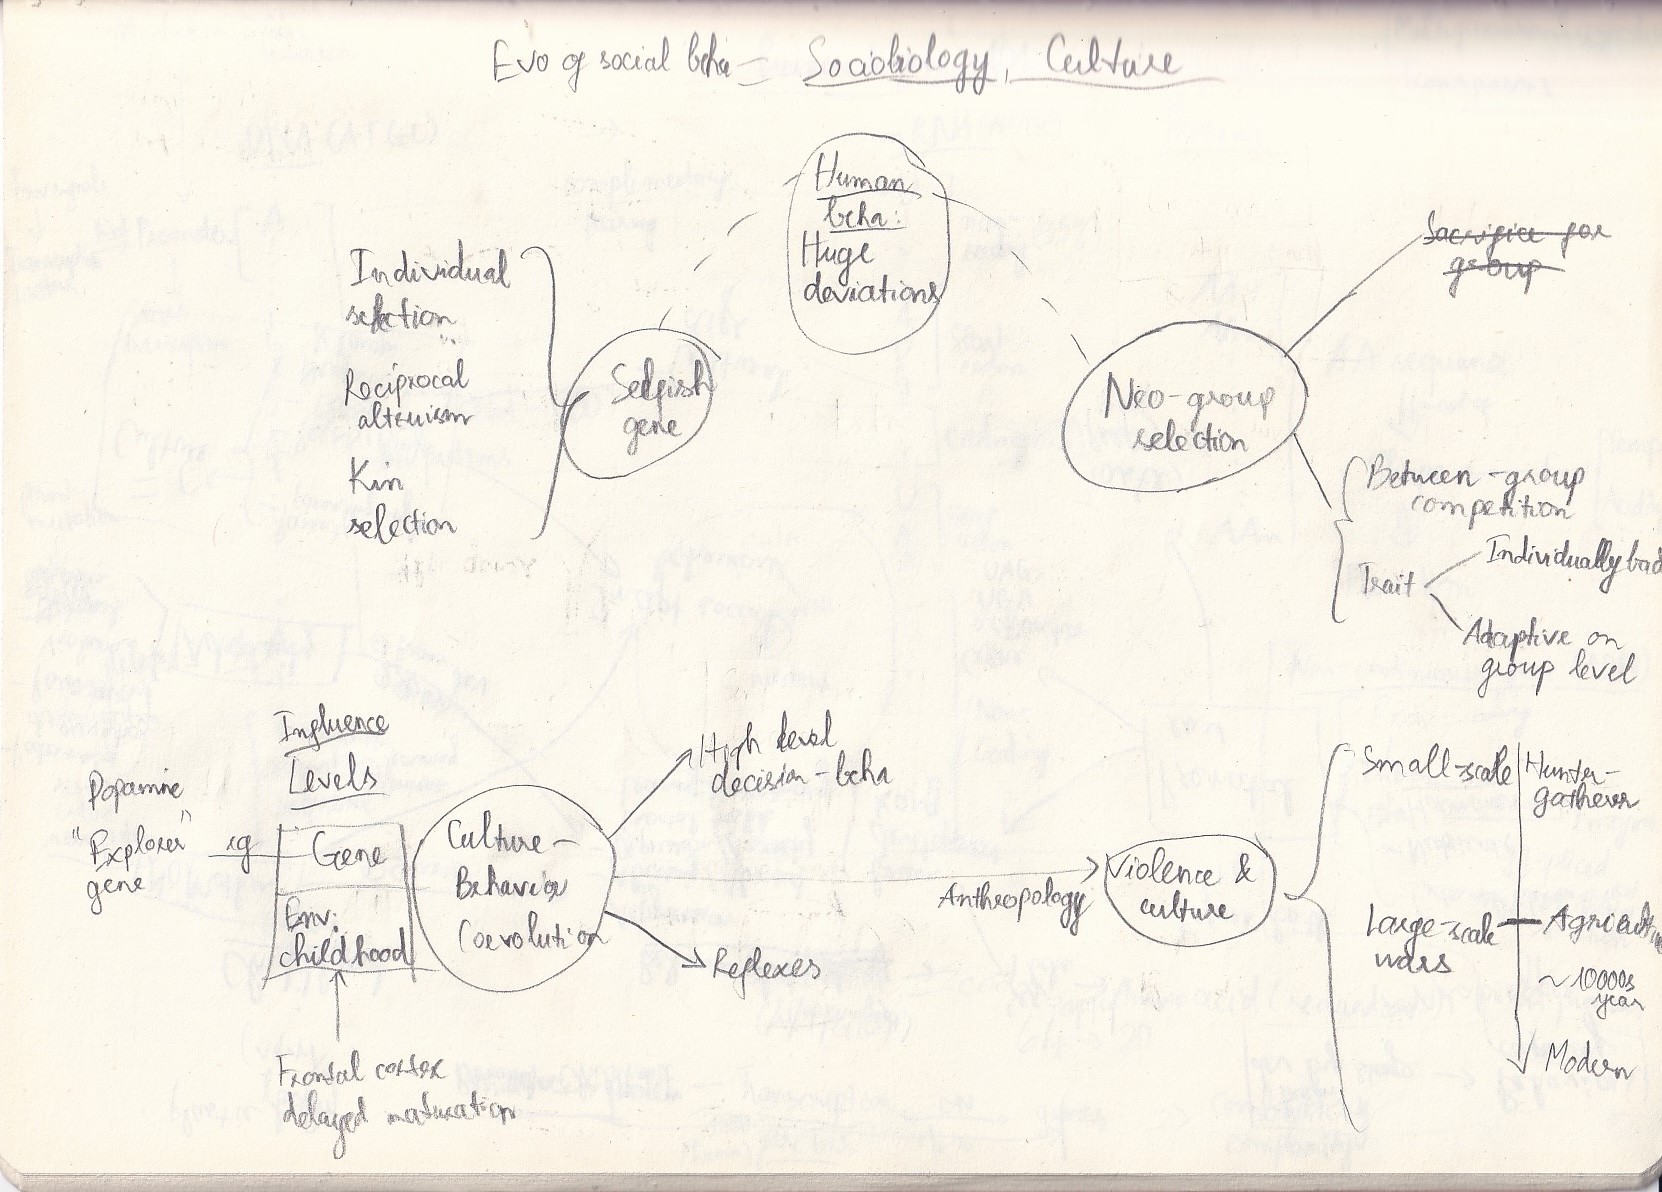 Evo of social beha - Sociobiology, Culture
Human
beha:
Huge
deviations
Individual
selection
Reciprocal
altruism
Kin
selection
Selfish
gene
Neo-group
selection
Sacrifice for
group
Between-group
competition
Trait
Individually bad
Adaptive on
group level
Influence
Levels
Dopamine
"Explorer"
gene
eg
Gene
Env:
childhood
Frontal cortex
delayed maturation
Culture -
Behavior
Coevolution
High level
decision-beha
Reflexes
Anthropology
Violence &
culture
Small-scale
Hunter-
gatherer
Large-scale
wars
~10000s
year
Modern